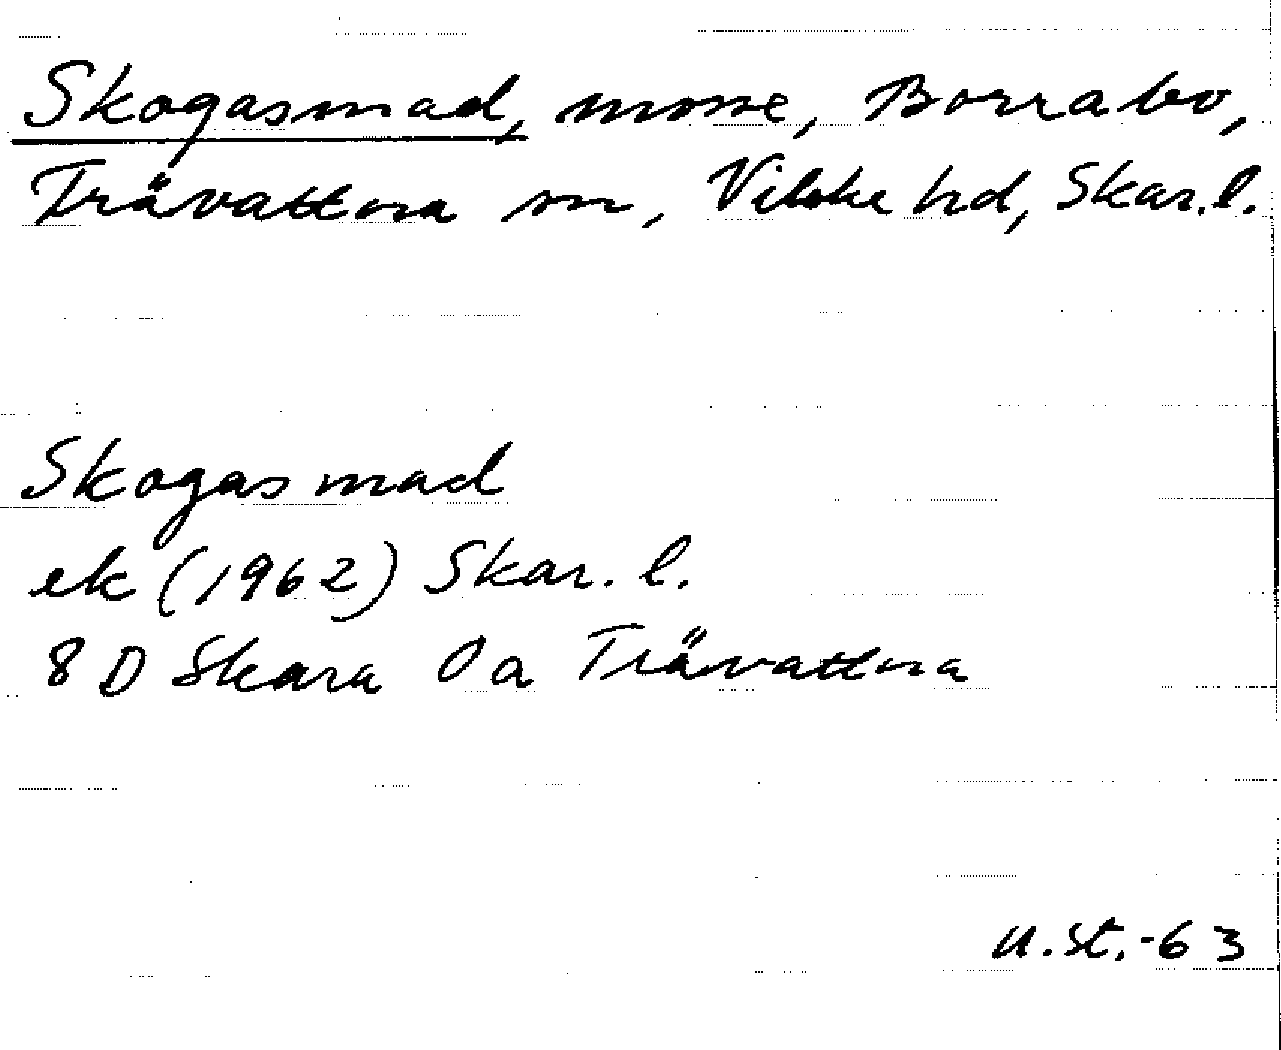 Skogasmad, mosse, Borrabo,
Trävattna sn, Vilske hd, Skar. l.
Skogasmad
ek (1962) Skar. l.
8 D Skara 0 a Trävattna
U. St. -63